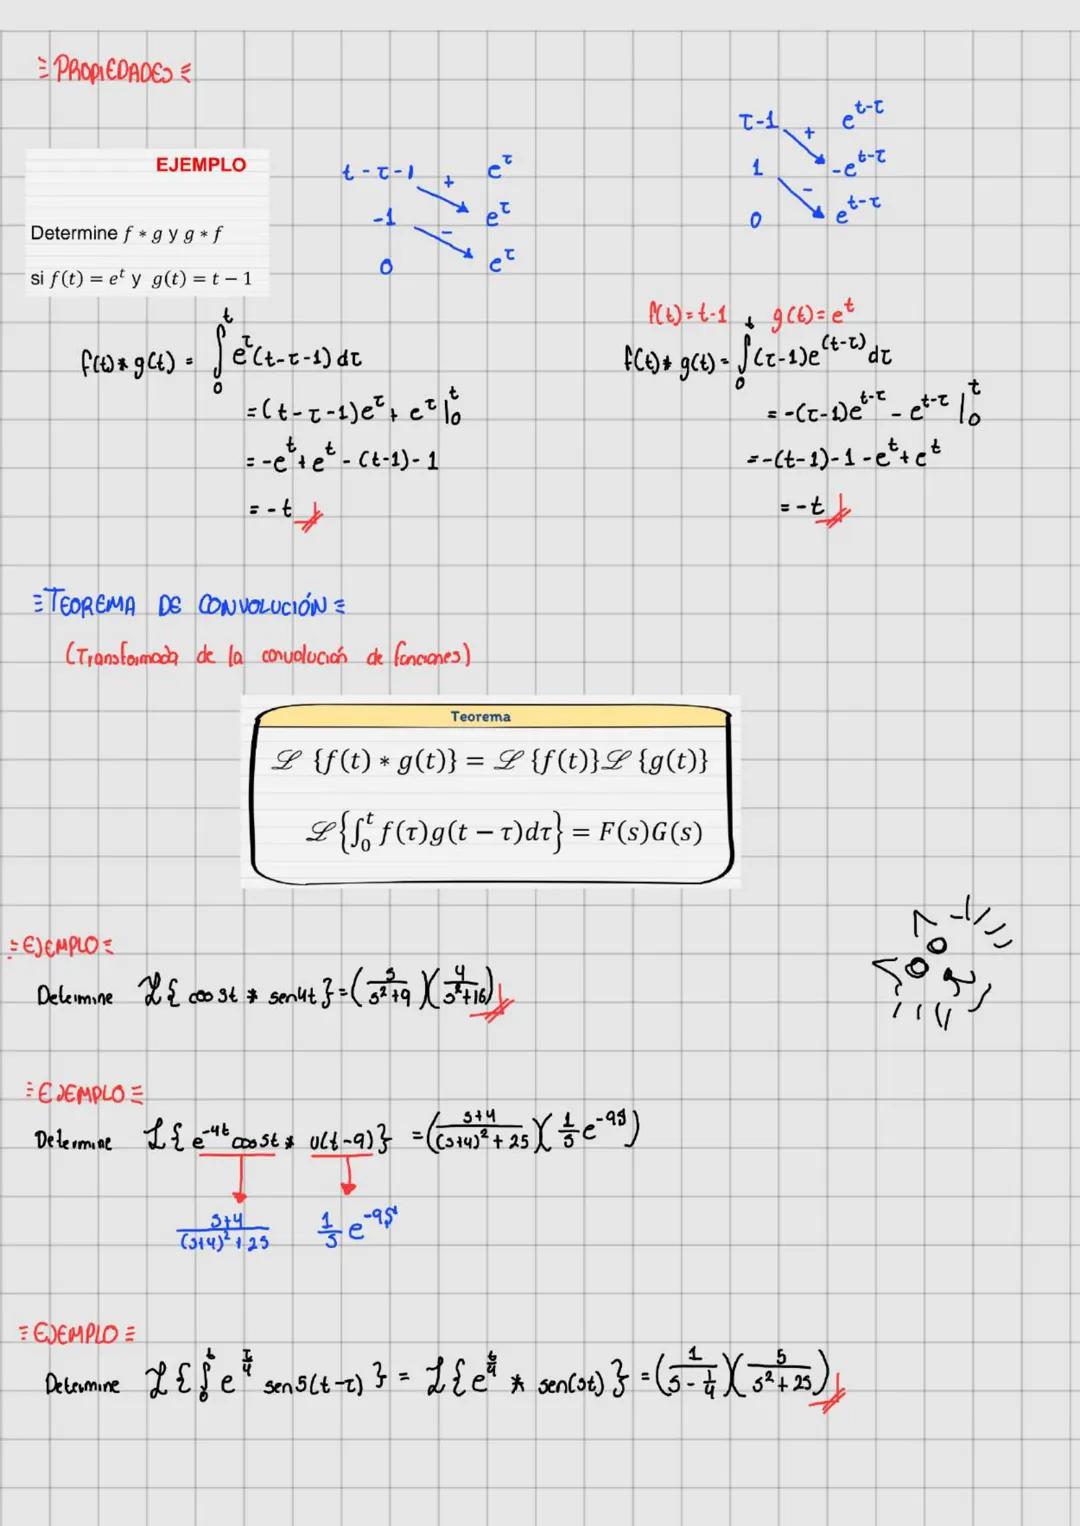 PROPIEDADES
EJEMPLO
Determine f ∗ g y g ∗ f
si f(t) = e^t y g(t) = t − 1
t-τ-1 + e^τ
-1 - e^τ
0 e^τ
τ-1 + e^{t-τ}
1 - -e^{t-τ}
0 e^{t-τ}
f(t)*g(t) = ∫_0^t e^τ(t-τ-1)dτ
=(t-τ-1)e^τ+e^τ|_0^t
=-e^t+e^t-(t-1)-1
=-t
f(t)=t-1 g(t)=e^t
f(t)*g(t)=∫_0^t(τ-1)e^{(t-τ)}dτ
=-(τ-1)e^{t-τ}-e^{t-τ}|_0^t
=-(t-1)-1-e^t+e^t
=-t
TEOREMA DE CONVOLUCIÓN
(Transformada de la convolución de funciones)
Teorema
ℒ {f(t) ∗ g(t)} = ℒ {f(t)}ℒ {g(t)}
ℒ{∫_0^t f(τ)g(t − τ)dτ} = F(s)G(s)
EJEMPLO
Determine ℒ{cos3t * sen4t}=(s/(s²+9))(4/(s²+16))
EJEMPLO
Determine ℒ{e^{-4t}cos5t * u(t-9)} =((s+4)/((s+4)²+25))(1/s e^{-9s})
(s+4)/((s+4)²+25) 1/s e^{-9s}
EJEMPLO
Determine ℒ{∫_0^t e^{τ/4} sen5(t-τ)} = ℒ{e^{t/4} * sen(5t)} =(1/(s-1/4))(5/(s²+25))